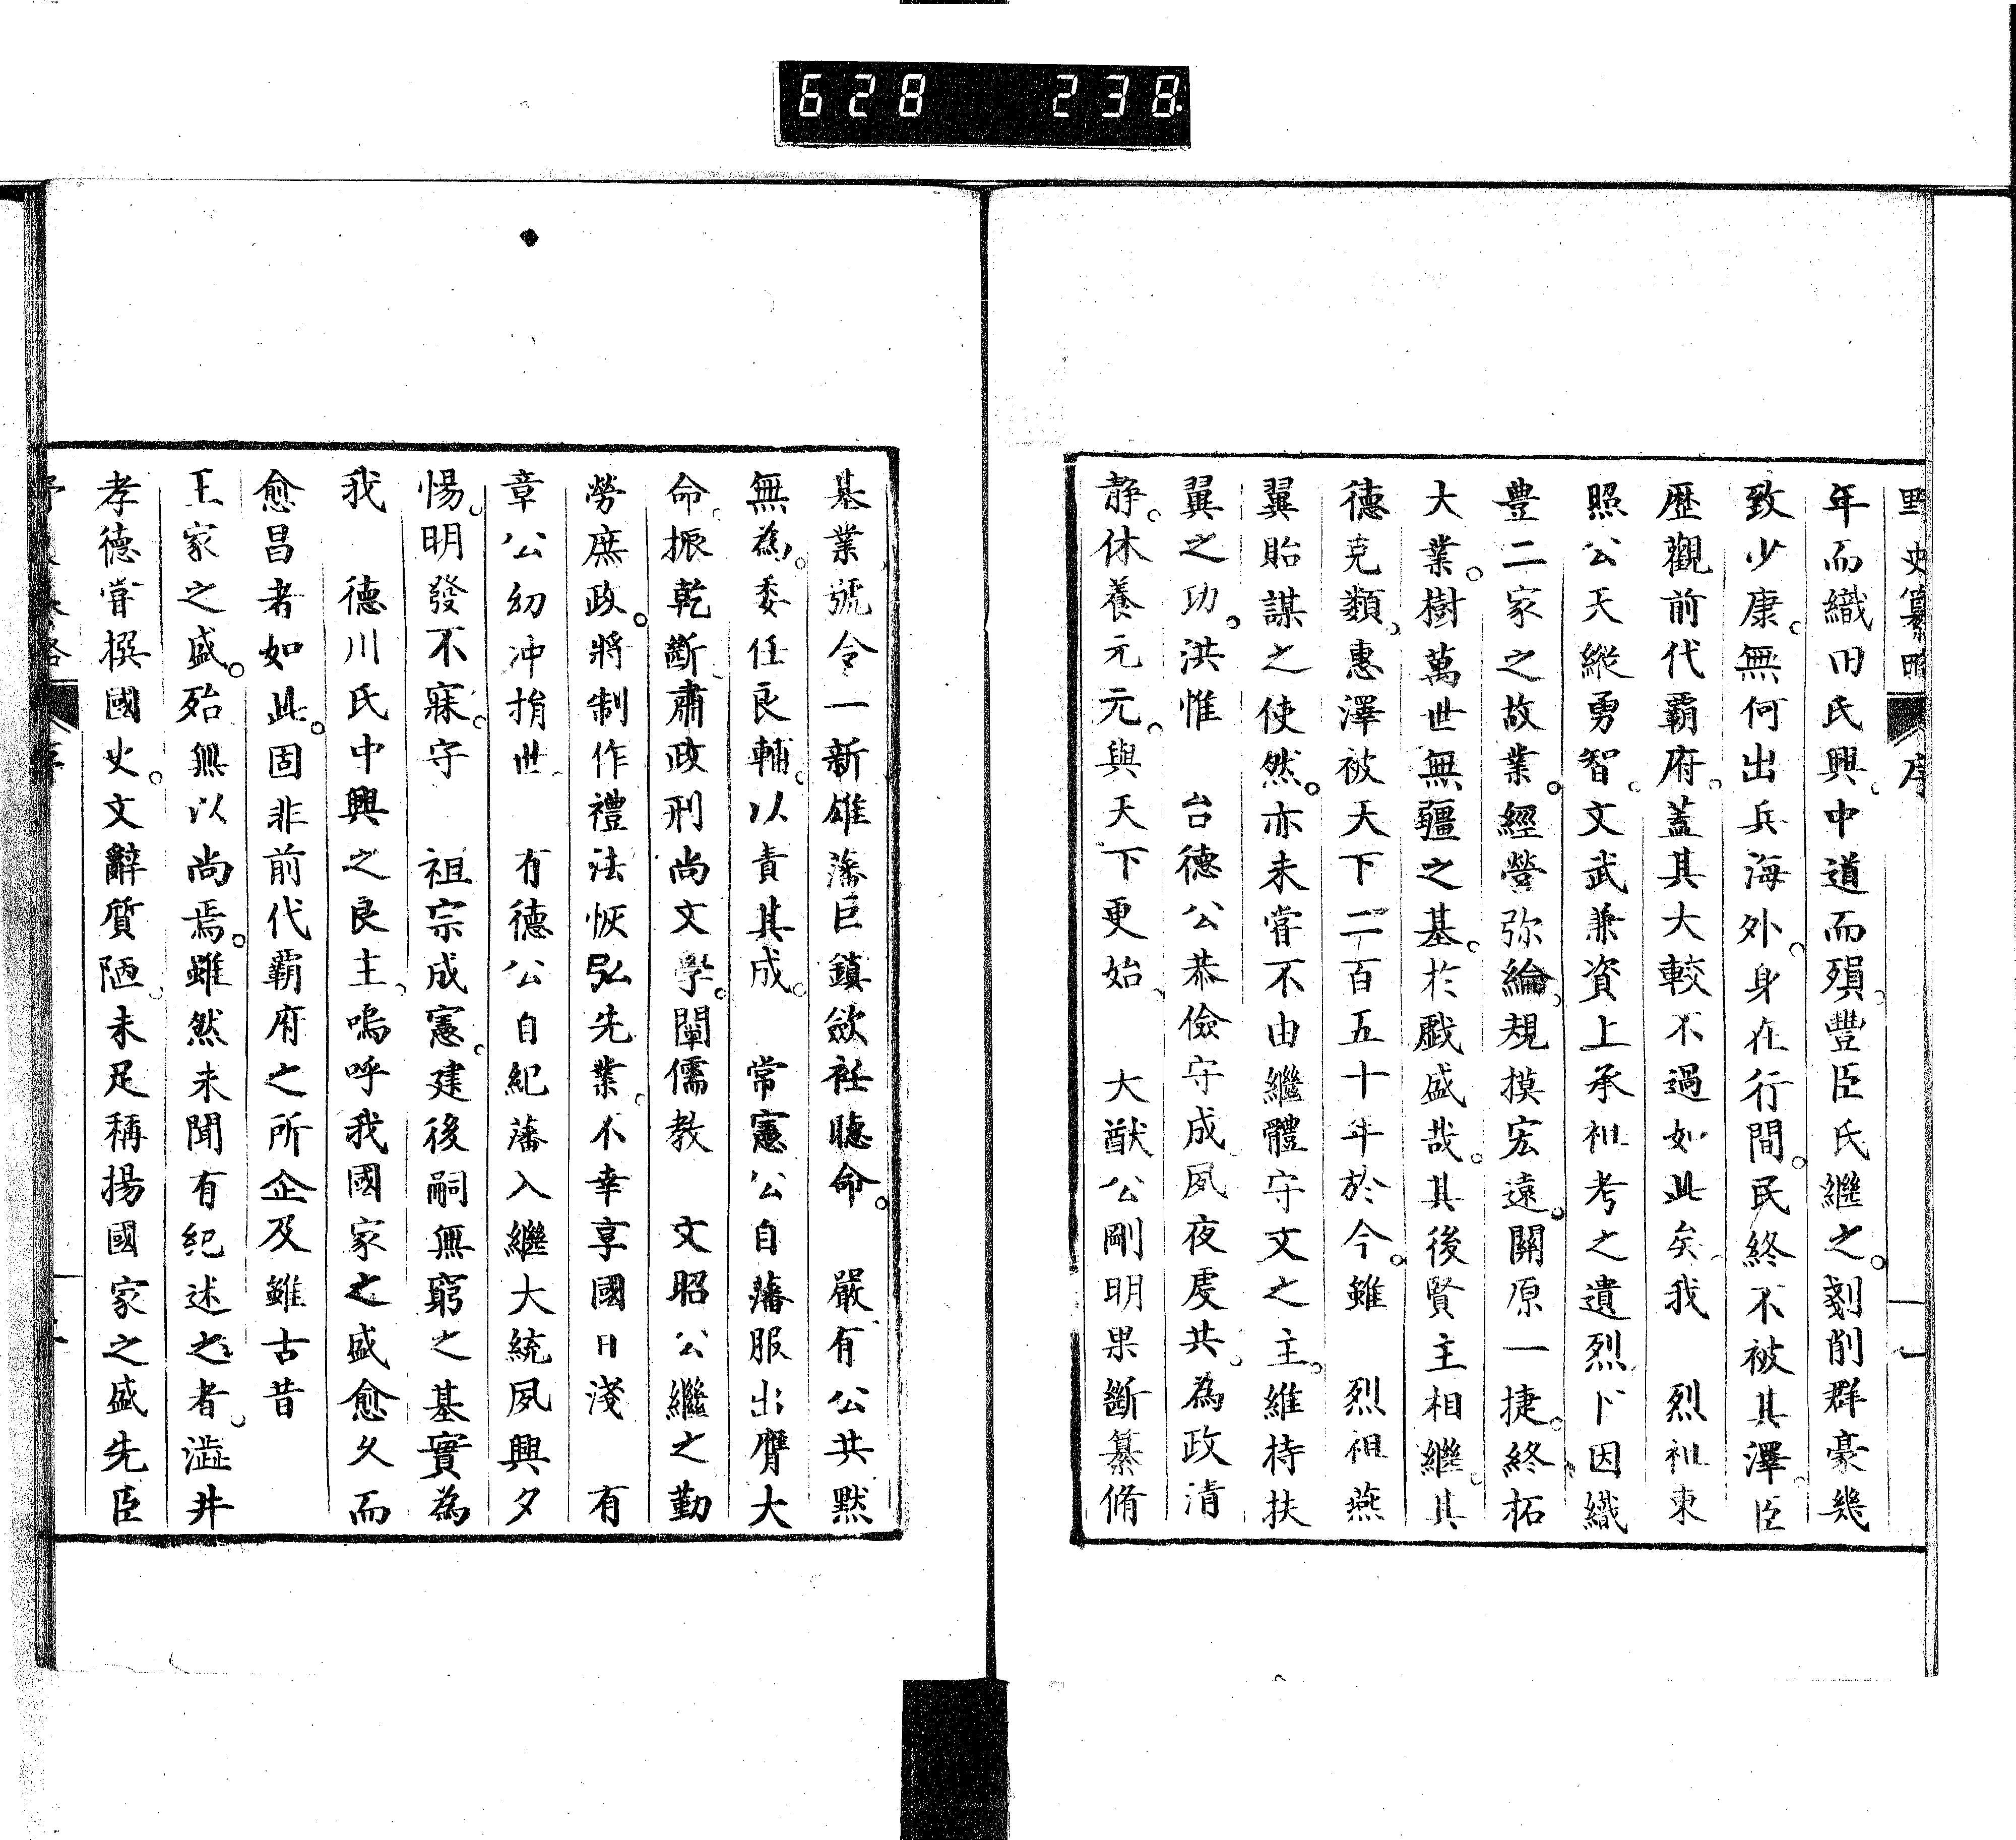 628 238.
野史纂略 序 一
年而織田氏興。中道而殞。豐臣氏繼之。剗削群豪幾
致少康。無何出兵海外。身在行間。民終不被其澤。臣
歷觀前代覇府。蓋其大較不過如此矣。我 烈祖東
照公天縱勇智。文武兼資上承祖考之遺烈。下因織
豊二家之故業。經營弥綸。規摸宏遠。關原一捷。終拓
大業。樹萬世無疆之基。於戯盛哉。其後賢主相繼。其
德克類。惠澤被天下二百五十年於今。雖 烈祖燕
翼貽謀之使然。亦未嘗不由繼體守文之主。維持扶
翼之功。洪惟 台德公恭儉守成。夙夜虔共。為政清
静。休養元元。與天下更始。 大猷公剛明果斷纂脩
基業。號令一新雄藩巨鎮歛衽聴命。 嚴有公共默
無為。委任良輔。以責其成。 常憲公自藩服出膺大
命。振乾斷。肅政刑尚文學。闡儒教 文昭公繼之勤
勞庶政。將制作禮法恢弘先業。不幸享國日淺 有
章公幼冲捐世。 有德公自紀藩入繼大統夙興夕
惕。明發不寐。守 祖宗成憲。建後嗣無窮之基實為
我 德川氏中興之良主。嗚呼我國家之盛愈久而
愈昌者如此。固非前代覇府之所企及雖古昔
王家之盛。殆無以尚焉。雖然未聞有紀述之者。澁井
孝德嘗撰國史。文辭質陋。未足稱揚國家之盛先臣